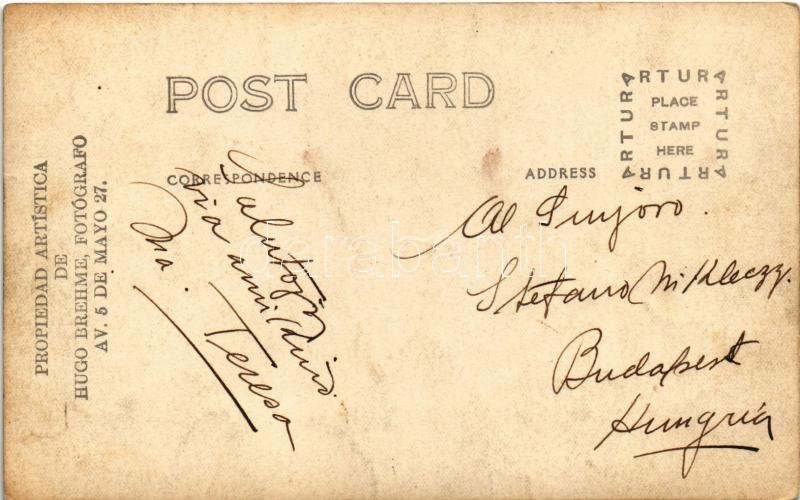 POST CARD
ARTURA
ARTURA
ARTURA
ARTURA
PLACE
STAMP
HERE
CORRESPONDENCE
ADDRESS
PROPIEDAD ARTÍSTICA
DE
HUGO BREHME, FOTÓGRAFO
AV. 5 DE MAYO 27.
Salutojn
via amikino
Tereso
Al Sinjoro.
Stefano Mikleczy.
Budapest
Hungria
darabanth